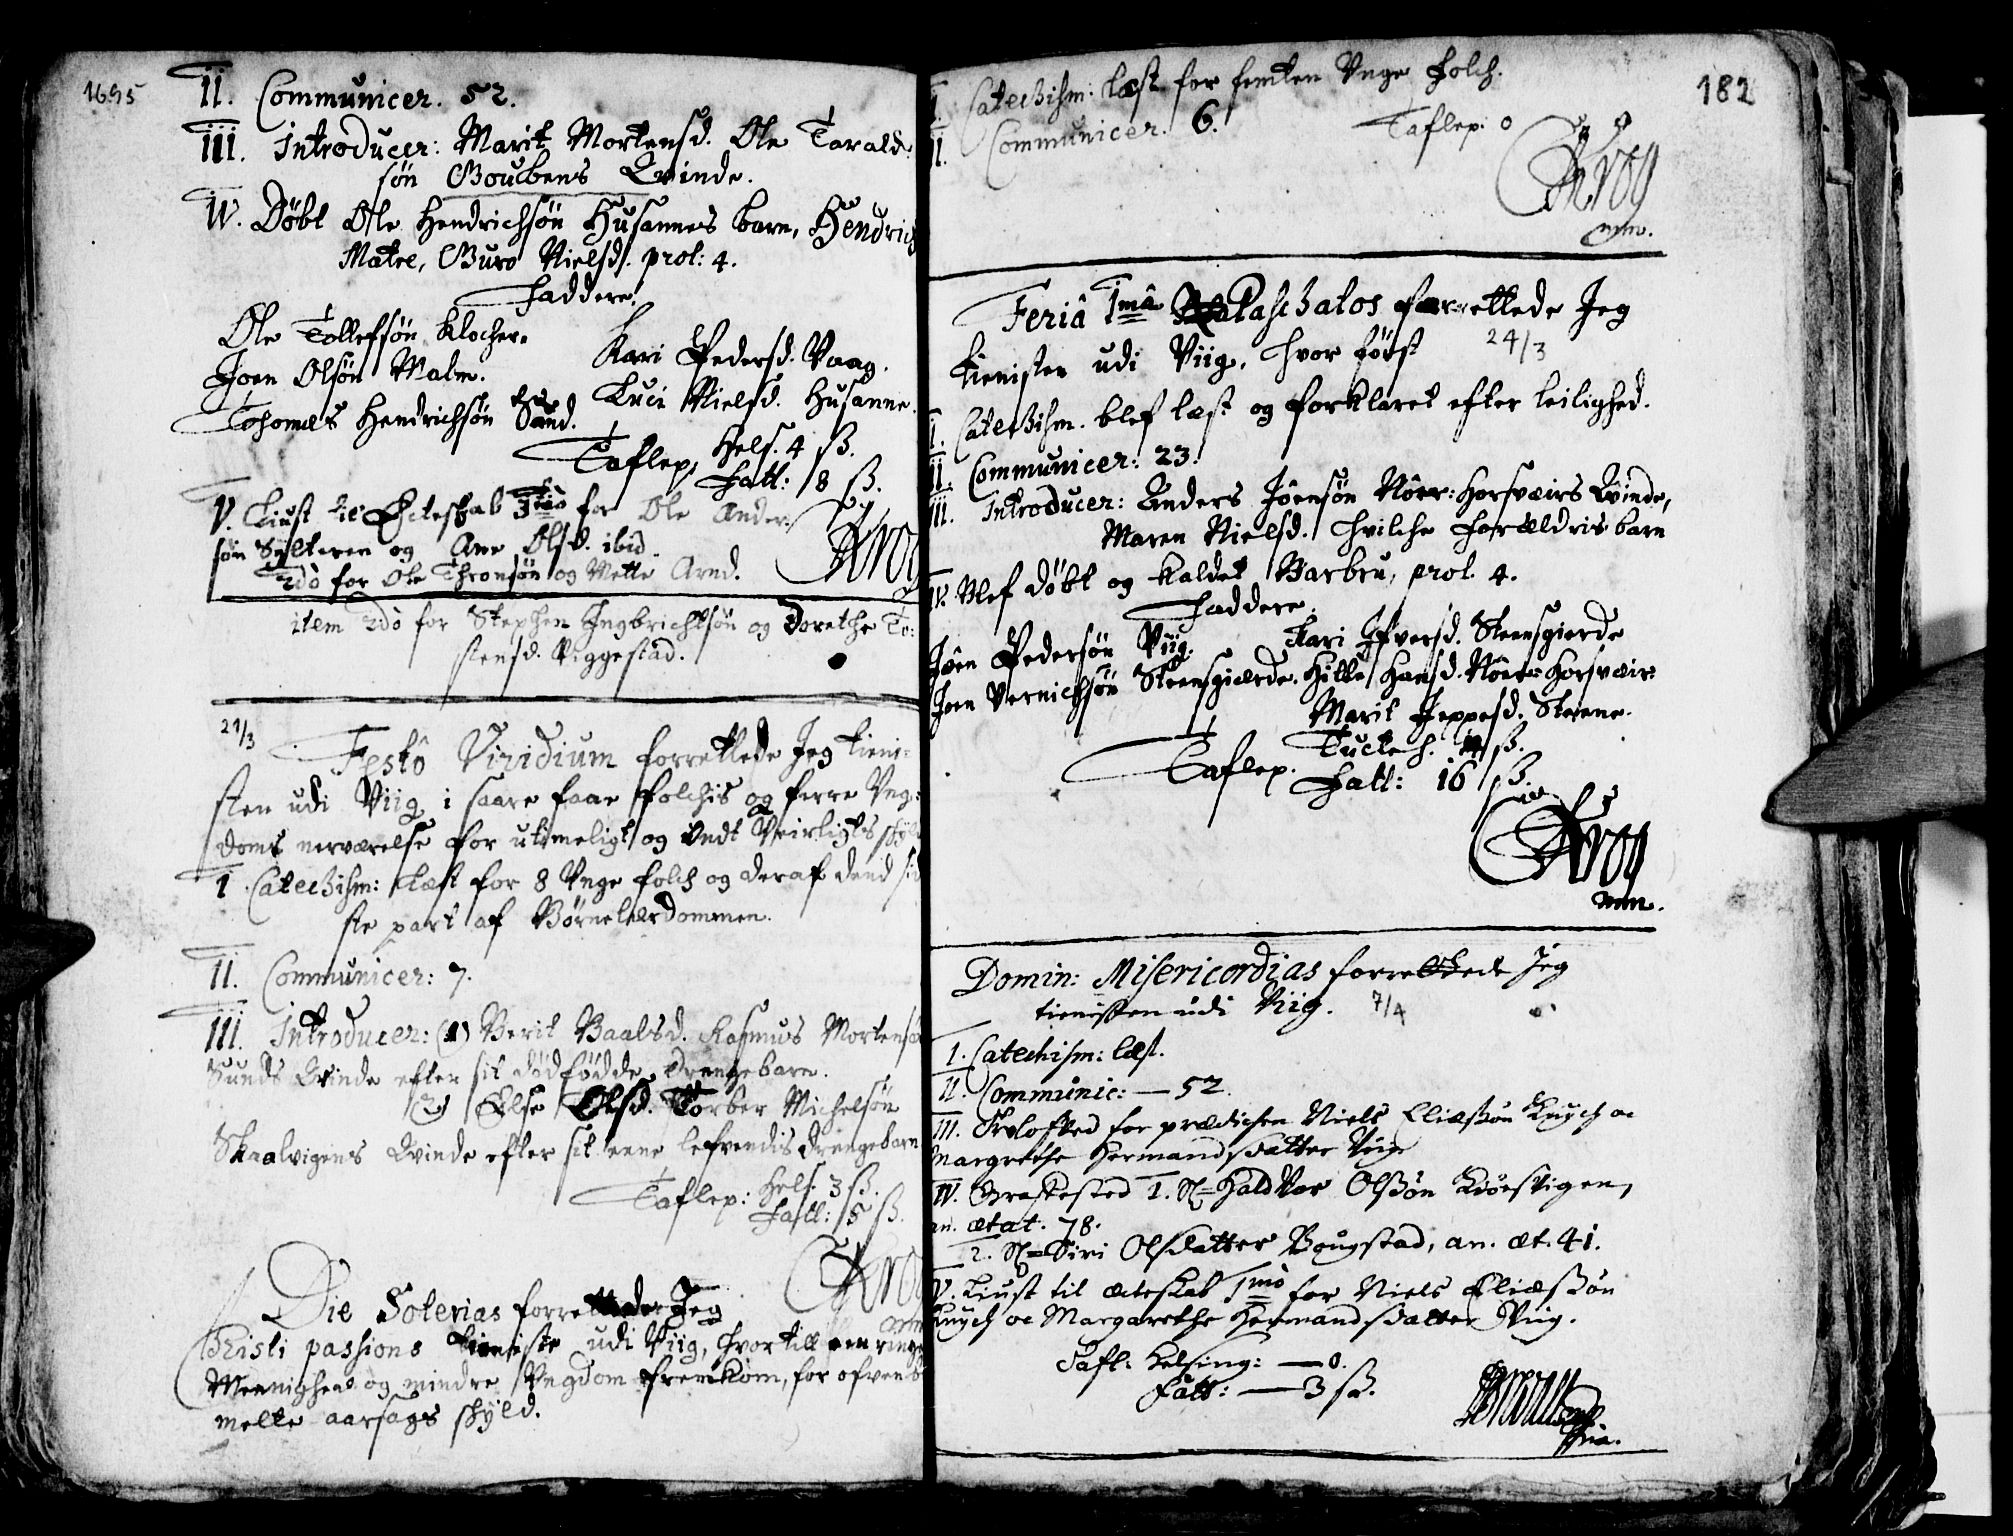 1695
II. Communicer. 52.
III. Introducer: Marit Mortensd. Ole Tarald:
søn Gouchens Qvinde.
IV. Døbt Ole Hendrichsøn Husannes barn, Hendrich
Matre, Guro Nielsd. prol: 4.
Faddere.
Ole Tollefsøn Klocher.
Joen Olsøn Malm.
Thomas Hendrichsøn Sand.
Kari Pedersd. Vaag.
Luci Nielsd. Husanne.
Taflep. Hels. 4 ß.
Fatt: 8 ß.
V. Liust til Ecteskab 3tiò for Ole Anders:
søn Sylteren og Ane Olsd. ibid.
2dò for Ole Thronsøn og Mette Arnd.
Krog
item 2dò for Stephen Ingbrichtsøn og Dorethe To:
stensd. Viggestad.
21/3
Festô Viridium forrettede Jeg tieni:
sten udi Viig i saare faae folchis og færre Ung:
doms nerværelse for utimeligt og ondt Veirligts skyld
I. Catechism: læst for 8 Unge folch og deraf dend sid
ste part af Børnelærdommen.
II. Communicer: 7.
III. Introducer: (1) Berit Baalsd. Rasmus Mortensøn
Sunds Qvinde efter sit dødfødde drengebarn.
(2) Else Olsd. Torber Michelsøn
Skaalvigens Qvinde efter sit eene lefvendis drengebarn
Taflep: Hels 3 ß.
Fatt: 5 ß.
Krog
Die Soterias forrettede Jeg
Christi passions tieniste udi Viig, hvor till een ringe
Meenighed og mindre Ungdom fremkom, for ofven be
melte aarsags skyld.
182
I. Catechism: læst for femten Unge folch.
II. Communicer. 6.
Taflep: 0
Krog
mm.
Feriâ 1mâ Paschatos forrettede Jeg
tienisten udi Viig, hvor først
24/3
I. Catechism. blef læst og forklaret efter leilighed.
II. Communicer: 23.
III. Introducer: Anders Joensøn Nörr: Horsvæirs Qvinde,
Maren Nielsd. hvilche forældris barn
IV. Blef døbt og kaldet Barbru, prol. 4.
Faddere.
Joen Pedersøn Viig.
Joen Vernichsøn Steensgierde.
Kari Ifversd. Steensgierde
Hitte Hansd. Nörr: Horsvæir
Marit Jeppesd. Steene.
Taflep. Kircke: 4 ß.
Fatt: 16 ß.
Krog
mm.
Domin: Misericordias forrettede Jeg
tienisten udi Viig. 7/4
I. Catechism: læst.
II. Communic: — 52.
III. Trolofved for prædichen Niels Eliæßøn Kuych oc
Margrethe Hermandsdatter Viig
IV. Grafested 1. Sl= Haldvor Olßøn Kiørsvigen,
an. ætat. 78.
2. Sl= Siri Olsdatter Bougstad, an. æt. 41.
V. Liust til ecteskab 1mò for Niels Eliæßøn
Kuych oc Margarethe Hermandsdatter Viig.
Tafl: Helsing: — 0.
Fatt: — 3 ß.